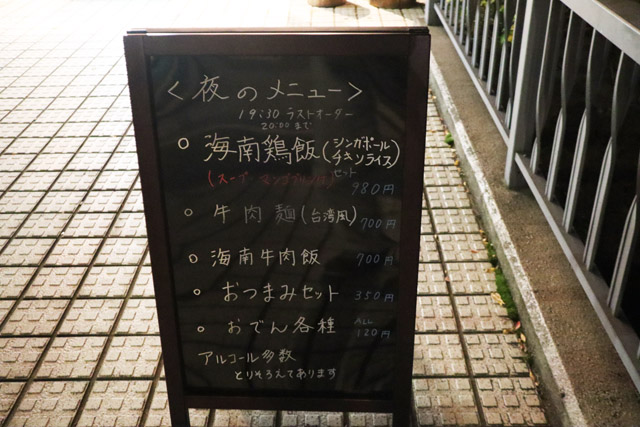 <夜のメニュー>
19:30 ラストオーダー
20:00 まで
○ 海南鶏飯(シンガポールチキンライス)
セット
(スープ・マンゴプリン付) 980円
○ 牛肉麺(台湾風) 700円
○ 海南牛肉飯 700円
○ おつまみセット 350円
○ おでん各種 ALL 120円
アルコール多数
とりそろえてあります